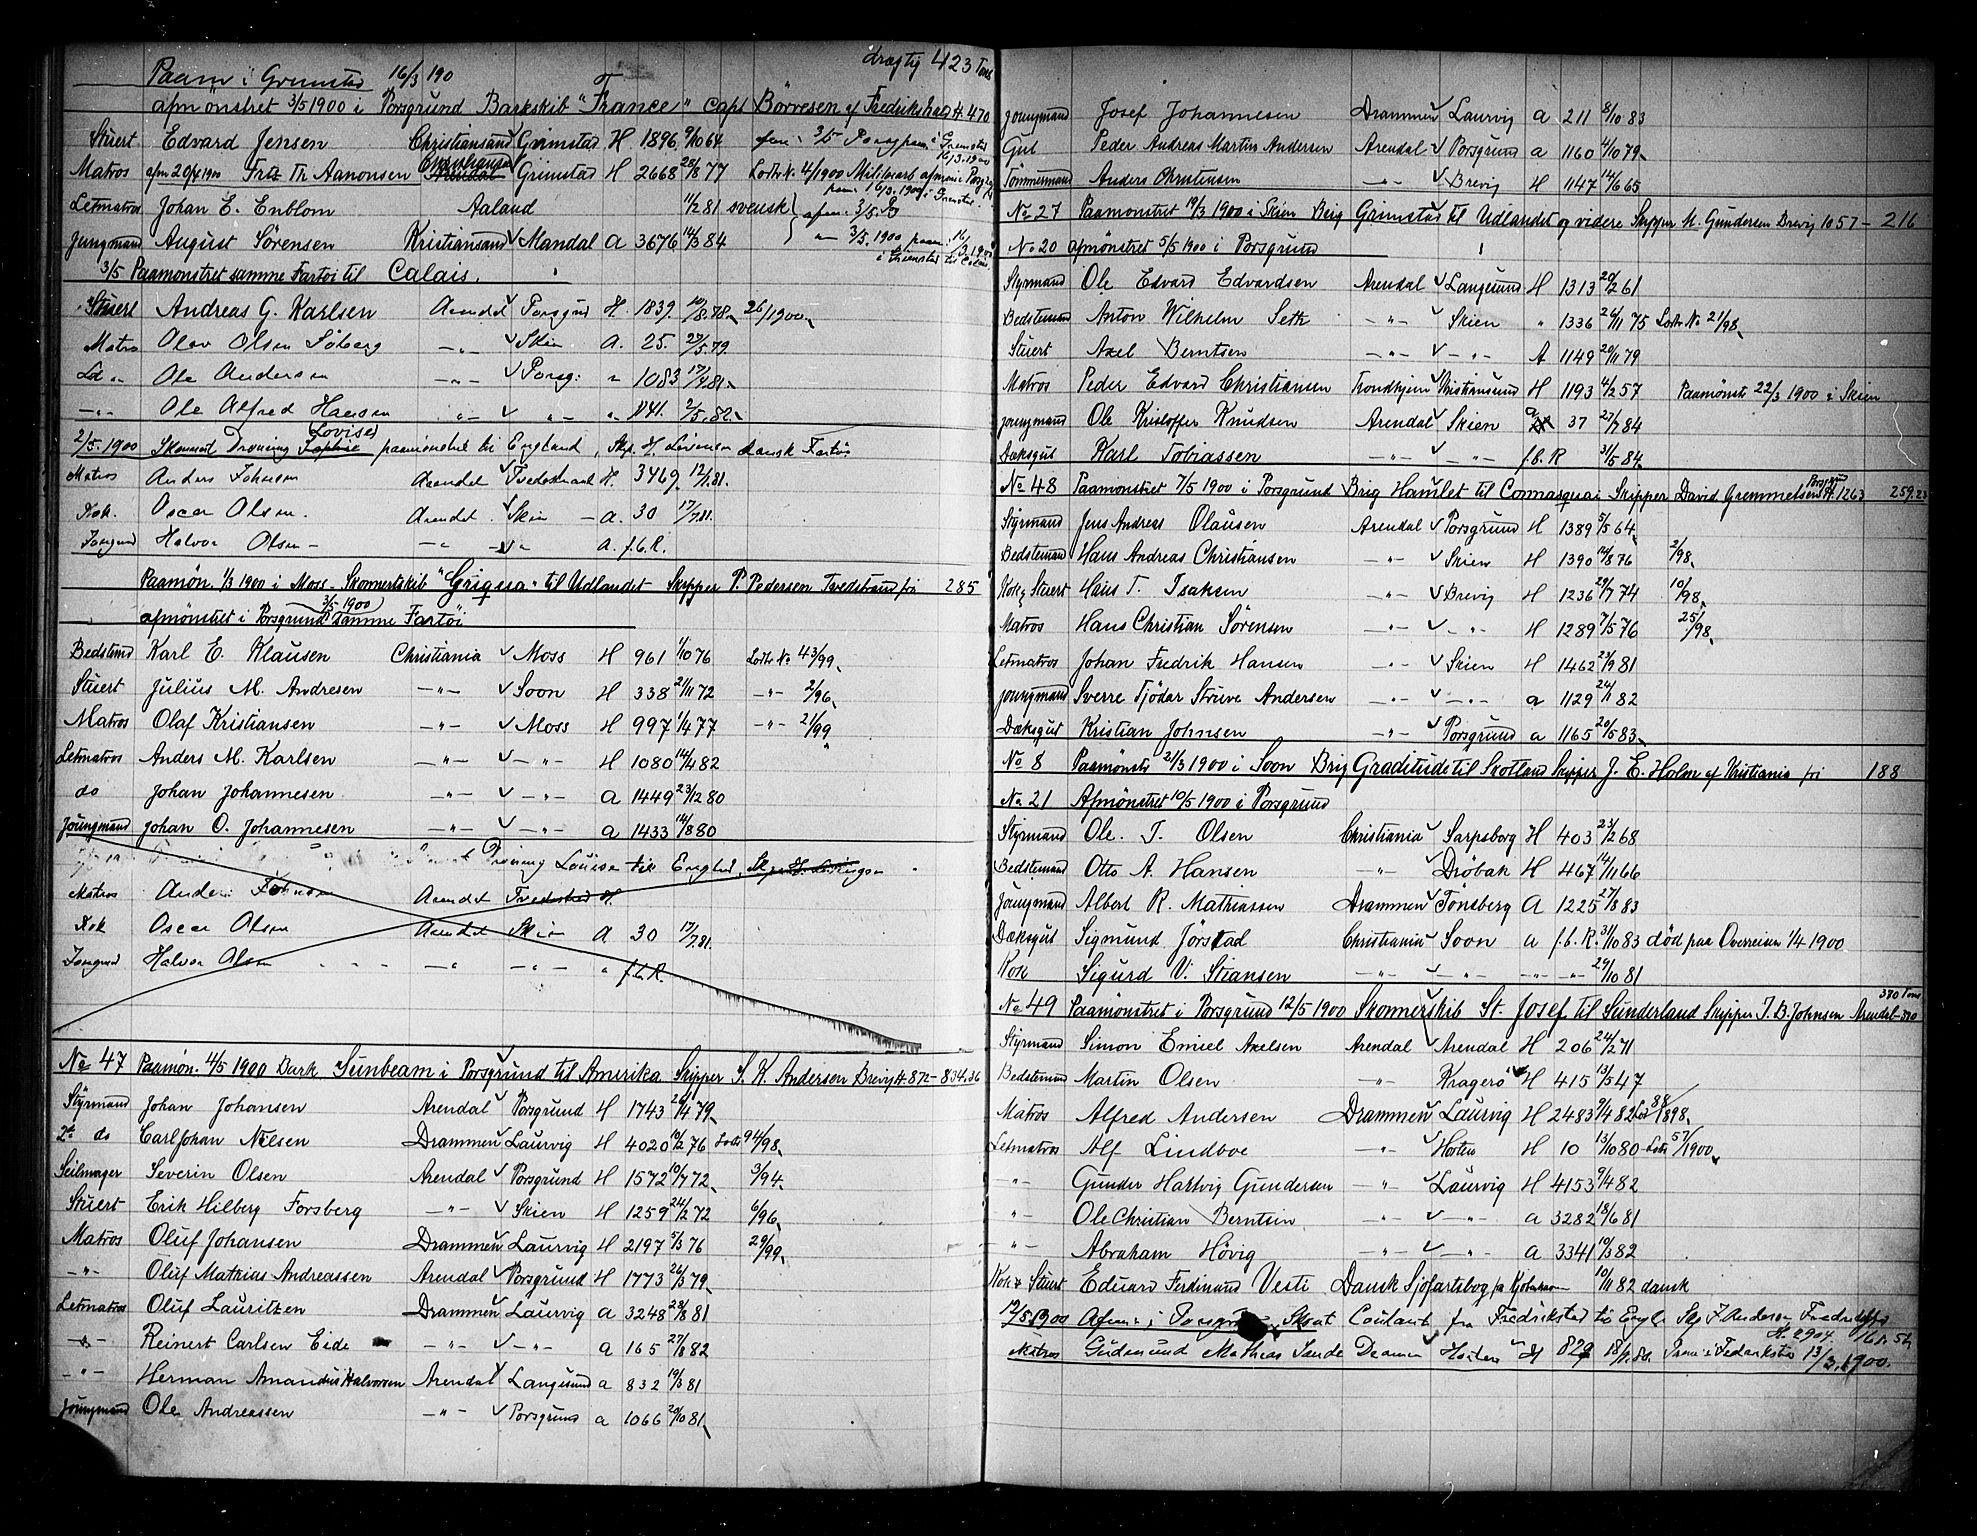 Paam i Grimstad 16/3 190 drægtig 423 Tons
afmønstret 3/5 1900 i Porsgrund Barkskib "France" Capt Börresen af Fredrikshald H.470
Stuert Edvard Jensen Christiansand Grimstad H 1896 9/10 64 afm: 3/5 Porsg paam: i Grimstad 16/3.1900
Matros afm 20/4 1900 Fritz Th Aanonsen Christiansand Arendal Grimstad H 2668 28/8 77 Lods No 4/1900
paam 16/3.1900 i Grimstad
Letmatros Johan E. Enblom Aaland 11/2 81 svensk afm: 3/5
Jungmand August Sørensen Kristiansand Mandal A 3676 14/3 84 3/5.1900 paam: 16/3 1900
i Grimstad til Calais
3/5 Paamonstret samme Fartøi til Calais.
Stuert Andreas G. Karlsen Arendal Porsgrund H. 1839. 26/1900
Matro Olav Olsen Soberg -"- Skien A. 25. 29/5.79.
Ld -"- Ole Andersen -"- Porsg: " 1083 17/4 81
-"- Ole Alfred Hansen -"- " 1141. 2/5.82
2/5.1900 Skonnert Dronning Sophie Lovise paamönstret til England, Skp. H. dansk Fartöi
Matros Anders Johnsen Arendal Tvedestrand H. 3469. 12/1.81.
Kok. Oscar Olsen. Arendal. Skien - A. 30 17/7.81.
Jongmd Halvor Olsen - -"- -"- A. f.b.R.
Paamøn. 1/3 1900 i Moss. Skonnertskib "Griqua" til Udlandet Skipper P. Pedersen Tvedestrand fri 285
afmønstret i Porsgrund 3/5 1900 Samme Fartöi
Bedstmd Karl E. Klausen Christiania Moss H 961 1/10 76 Lods No 43/99
Stuert Julius M. Andresen -"- Soon H 338 21/11 72 -"- 2/96
Matros Olaf Kristiansen -"- Moss H 997 1/4 77 -"- 21/99
Letmatros Anders M. Karlsen -"- -"- H 1080 14/4 82
do Johan Johannesen -"- -"- A 1449 23/12 80
Joungmand Johan O. Johannesen -"- -"- a 1433 14/8 80
Dronning Louise til England, Skp.
Matros Anders Johnsen Arendal Tvedestrand H.
Kok Oscar Olsen Arendal Skien A 30 17/7 81.
Jongmd Halvor Olsen -"- -"- " f.b.R.
No 47 Paamøn. 4/5 1900 Bark Sunbeam i Porsgrund til Amerika Skipper S. K. Andersen Brevig H.872 - 834.36
Styrmand Johan Johansen Arendal Porsgrund H 1743 26/4 79
2den do Carl Johan Nilsen Drammen Laurvig H 4020 10/2 76 Lods 94/98
Seilmager Severin Olsen Arendal Porsgrund H 1572 10/7 72 3/94
Stuert Erik Hilberg Forsberg -"- Skien H 1259 24/2 72 6/96
Matros Oluf Johansen Drammen Laurvig H 2197 5/3 76 29/99
-"- Oluf Mathias Andreassen Arendal Porsgrund H 1773 26/3 79
Letmatros Oluf Lauritzen Drammen Laurvig a 3248 23/8 81
-"- Reinert Carlsen Eide -"- -"- a 165 27/8 82
-"- Herman Amandus Halvorsen Arendal Langesund a 832 19/3 81
Joungmand Ole Andreassen -"- Porsgrund a 1066 20/10 81
joungmand Josef Johannesen Drammen Laurvig a 211 8/10 83
Gut Peder Andreas Martin Andersen Arendal Porsgrund a 1160 4/10 79
Tömmermand Anders Christensen -"- Brevig H 1147 14/6 65
No 27 Paamonstret 19/3 1900 i Skien Brig Grimstad til Udlandet og videre Skipper N. Gundersen Brevig 1057 - 216
No 20 afmønstret 5/5 1900 i Porsgrund
Styrmand Ole Edvard Edvardsen Arendal Langesund H 1313 20/2 61
Bedstemand Anton Wilhelm Seth -"- Skien " 1336 26/11 75 Lods No 21/98
Stuert Axel Berntsen -"- -"- A 1149 20/11 79
Matros Peder Edvard Christiansen Trondhjem Kristiansund H 1193 4/2 57 Paamönst 22/3 1900 i Skien
joungmand Ole Kristoffer Knudsen Arendal Skien a 37 27/7 84
Dæksgut Karl Tobiassen -"- -"- f.b.R 31/5 84
No 48 Paamonstret 7/5 1900 i Porsgrund Brig Hamlet til Cornasquai Skipper David Gremmelsen Porsgrund H 1263 259.23
Styrmand Jens Andreas Olausen Arendal Porsgrund H 1389 5/5 64
Bedstemand Hans Andreas Christiansen -"- Skien H 1390 14/8 76 2/98
Kok & Stuert Hans T. Isaksen -"- Brevig H 1236 29/7 74 10/98
Matros Hans Christian Sörensen -"- -"- H 1289 7/5 76 25/98
Letmatros Johan Fredrik Hansen -"- Skien H 1462 23/9 81
joungmand Sverre Tjödar Struve Andersen -"- -"- a 1129 24/11 82
Dæksgut Kristian Johnsen -"- Porsgrund a 1165 20/5 83
No 8 Paamönstr 21/3 1900 i Soon Brig Graditude til Skotland Skipper J. E. Holm af Kristiania fri 188
No 21 Afmönstret 10/5 1900 i Porsgrund
Styrmand Ole. T. Olsen Christiania Sarpsborg H 403 23/2 68
Bedstemand Otto A. Hansen -"- Dröbak H 467 14/11 66
Joungmand Albert R. Mathiassen Drammen Tönsberg A 1225 27/8 83
Dæksgut Sigmund Jörstad Christiania Soon a f.b.R. 31/10 83 död paa Overreisen 1/4 1900
Kok Sigurd V. Stiansen -"- -"- -"- -"- 29/10 81
No 49 Paamönstret i Porsgrund 12/5 1900 Skonnertskib St. Josef til Sunderland Skipper T. B. Johnsen Arendal 380 Tons
Styrmand Simon Emiel Axelsen Arendal Arendal H 206 24/2 71
Bedstemand Martin Olsen -"- Kragerø H 415 13/5 47
Matros Alfred Andersen Drammen Laurvig H 2483 9/4 82 Lods 88/1898
Letmatros Alf Lindboe -"- Horten H 10 13/10 80 Lods 57/1900
-"- Gunder Hartvig Gundersen -"- Laurvig H 4153 9/4 82
-"- Ole Christian Berntsen -"- -"- a 3282 18/6 81
-"- Abraham Hövig -"- -"- a 3341 10/3 82
Kok & Stuert Eduard Ferdinand Vesti Dansk Sjöfartsbog fra Kjöbenhavn 10/11 82 dansk
12/5.1900 Afm: i Porsgrund Skont Coulant fra Fredrikstad til Engl. Skp F. Andersen Fredrikstad
H. 2904. 161.52
Matros Gudmund Mathias Sande Drammen Horten H 829 18/1.80. Paam i Fredrikstad 13/3.1900.